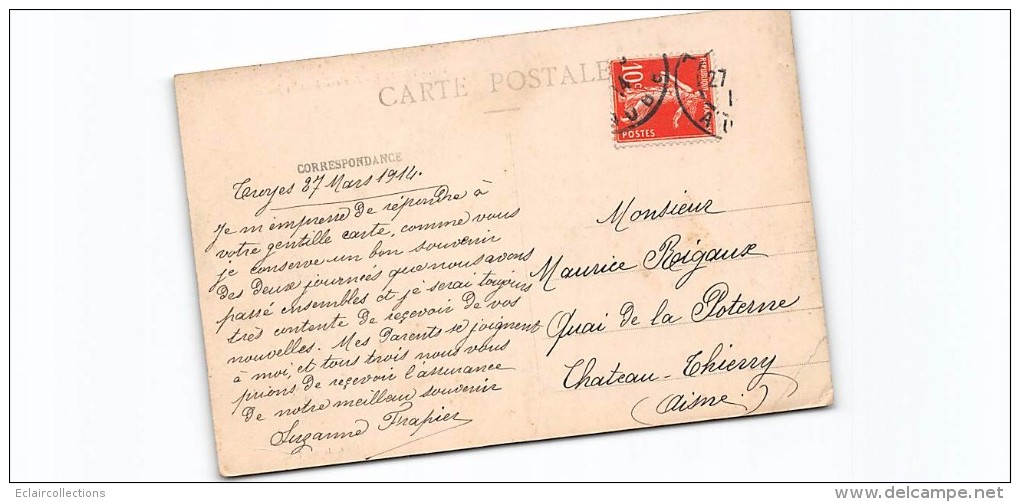 CARTE POSTALE
CORRESPONDANCE
Troyes 27 Mars 1914.
Je m'empresse de répondre à
votre gentille carte, comme vous
je conserve un bon souvenir
des deux journées que nous avons
passé ensembles et je serai toujours
très contente de reçevoir de vos
nouvelles. Mes Parents se joignent
à moi, et tous trois nous vous
prions de reçevoir l'assurance
de notre meilleur souvenir
Suzanne Frapier
10c
REPUBLIQUE
POSTES
AUBE
27
Monsieur
Maurice Rigaux
Quai de la Poterne
Chateau-Thierry
(Aisne)
Eclaircollections
www.delcampe.net